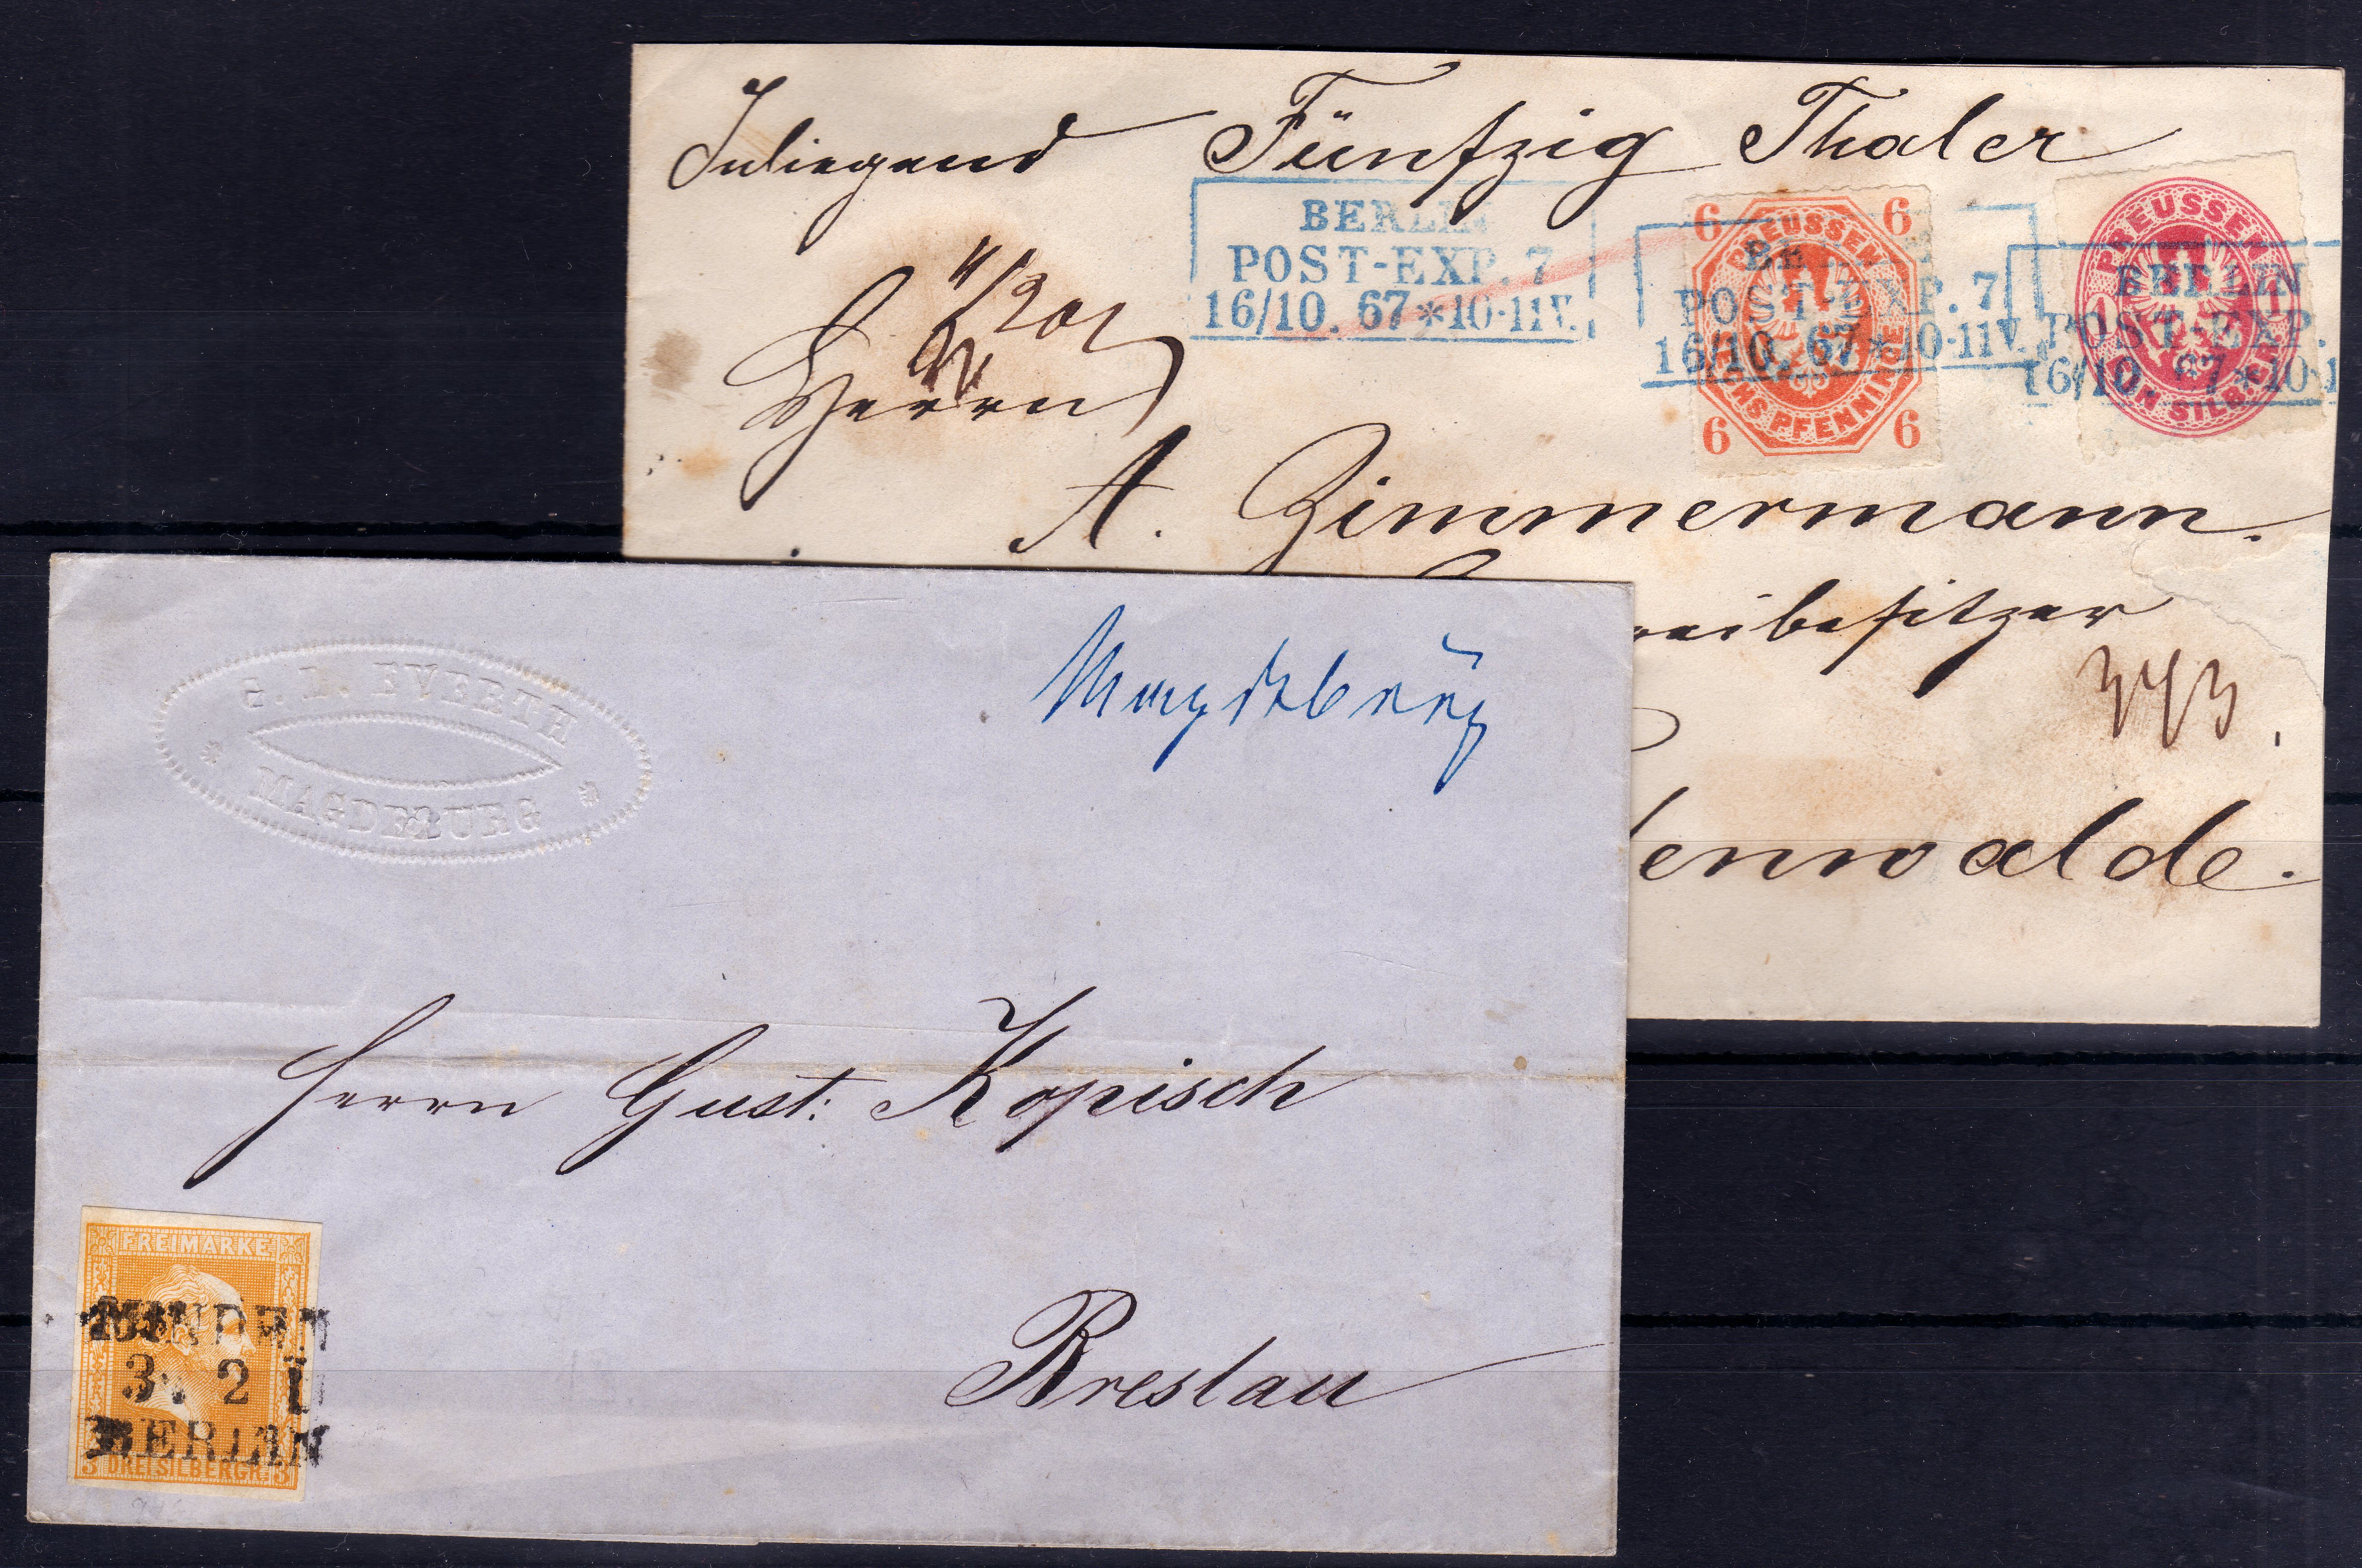 Inliegend Fünfzig Thaler
BERLIN
POST-EXP. 7
16/10. 67*10-11V.
6 6
PREUSSEN
SECHS PFENNINGE
6 6
BE
POST-EXP. 7
16/10. 67*10-11V.
PREUSSEN
1 1
EIN SILBERGR.
BERLIN
POST-EXP.
16/10. 67*10-1
Herrn
A. Zimmermann.
reibesitzer
373.
enwalde.
EVERTH
* MAGDEBURG *
Magdeburg
Herrn Gust: Kopisch
Breslau
FREIMARKE
MINDEN
3 2 I
BERLIN
3 DREI SILBERGR. 3